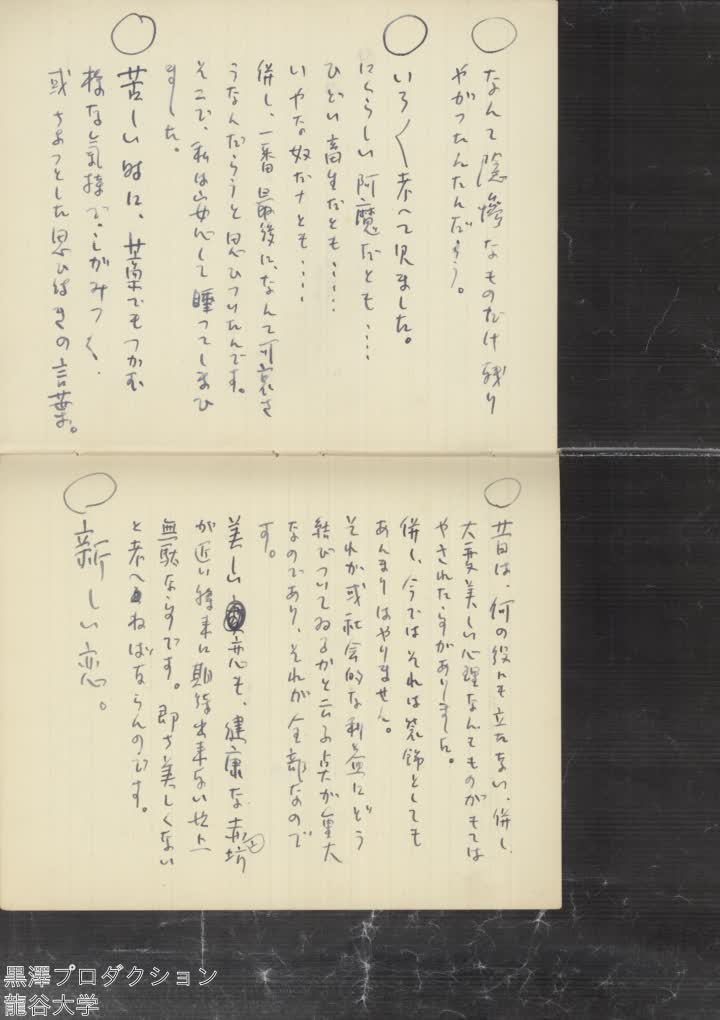 なんて陰惨なものだけ残り
やがつたんだらう。
いろ〱考へて見ました。
にくらしい阿魔だとも‥‥
ひどい畜生だとも‥‥
いやな奴だナとも‥‥
併し、一番最後に、なんて可哀さ
うなんだらうと思ひついたんです。
そこで、私は安心して睡つてしまひ
ました。
苦しい時に、藁でもつかむ
様な気持で、しがみつく、
或ちよつとした思ひつきの言葉。
昔は、何の役にも立たない、併し、
大変美しい心理なんてものがもては
やされたらすがありました。
併し、今ではそれは装飾としても
あんまりはやりません。
それが或社会的な利益にどう
結びついてゐるかと云ふ点が重大
なのであり、それが全部なので
す。
美しい恋も、健康な赤坊
が近い将来に期待出来ない以上
無駄ならずです。即ち美しくない
と考へねばならんのです。
新しい恋。
黒澤プロダクション
龍谷大学